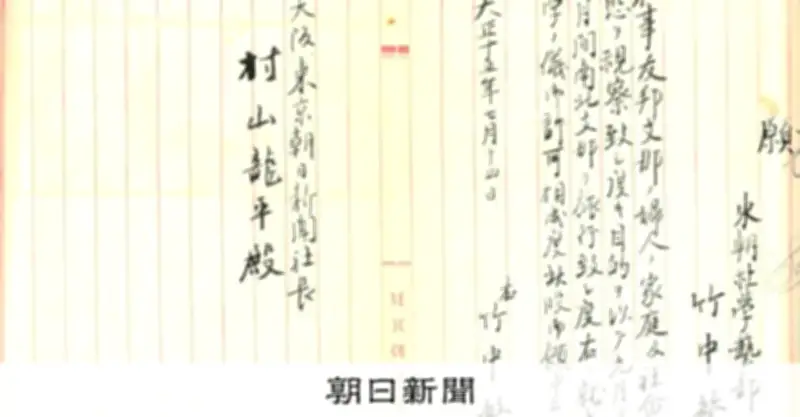 願
東朝社学藝部
竹中
事友邦支那ノ婦人、家庭及社会
態ヲ視察致シ度キ目的ヲ以テ九月
月間南北支那ヲ旅行致シ度右
学ノ儀御許可相成度此段御願
大正十五年七月十四日
右 竹中
大阪東京朝日新聞社長
村山龍平殿
朝日新聞